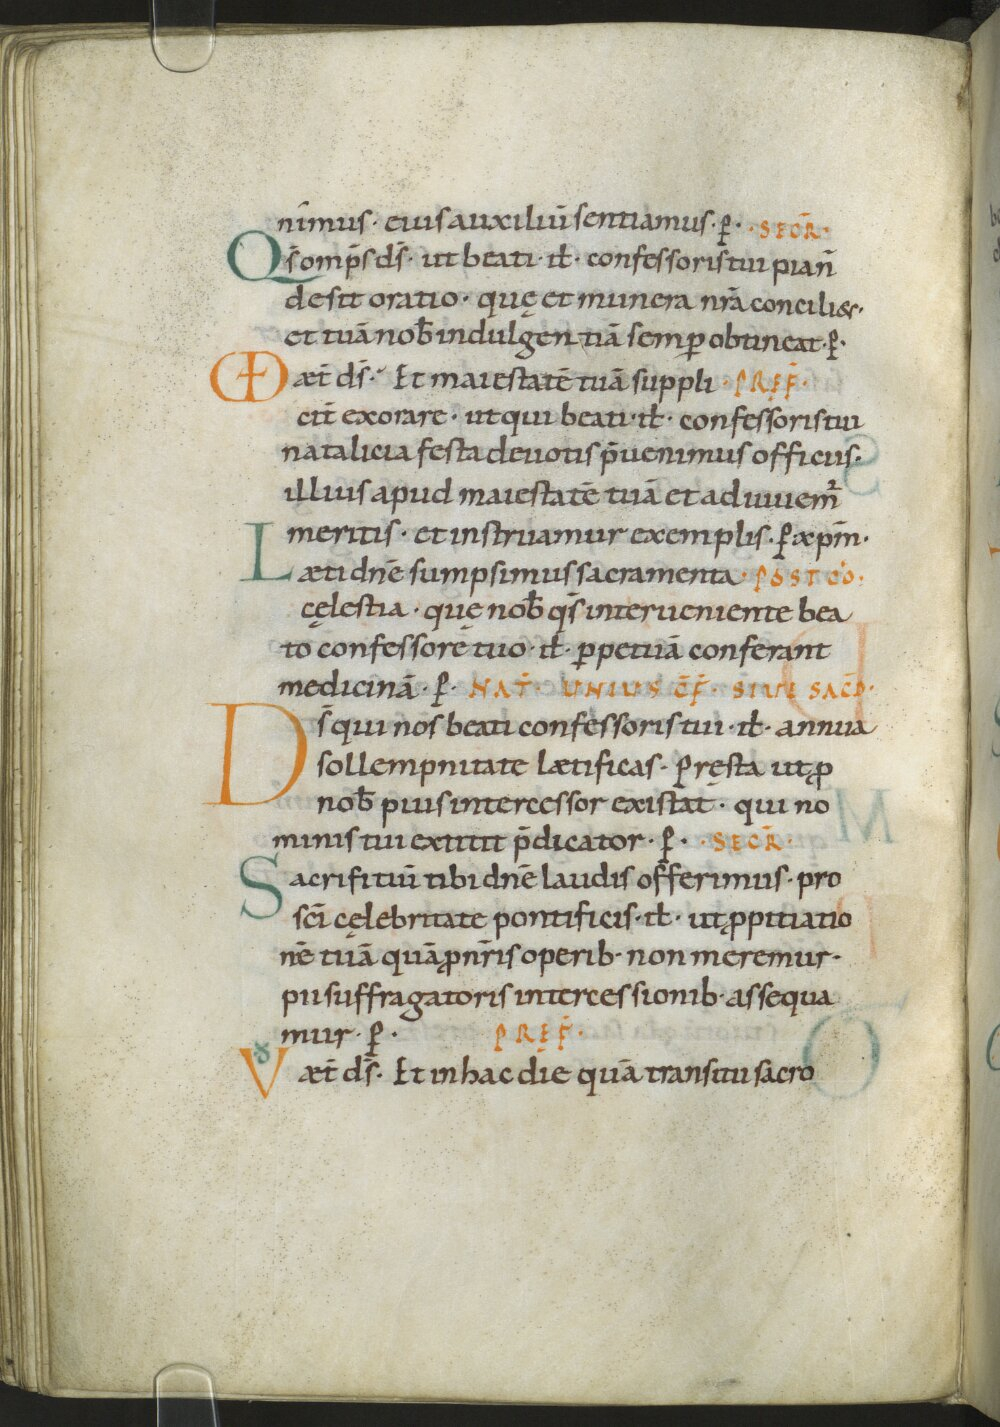 nīmus· eius auxiliū sentiamus· ꝑ· ·SECR̄·
Qs̄ omp̄s ds̄· ut beati· ił· confessoris tui pian̄
desit oratio· quę et munera nrā conciliet·
et tuā nob̄ indulgentiā semꝑ obtineat· ꝑ·
VD æt̄ ds̄· Et maiestatē tuā suppli ·PREF̄·
cit̄ exorare· ut qui beati· ił· confessoris tui
natalicia festa deuotis p̄uenimus officiis·
illius apud maiestatē tuā et adiuuem̄
meritis· et instruamur exemplis· ꝑ æ xp̄m̄·
Læti dn̄e sumpsimus sacramenta ·POST CŌ·
cęlestia· quę nob̄ qs̄ interueniente bea
to confessore tuo· ił· ꝑpetuā conferant
medicinā· ꝑ· NAT̄· UNIUS C̄F̄· SIUE SACD̄·
Ds̄ qui nos beati confessoris tui· ił· annua
sollempnitate lætificas· Pręsta ut ꝓ
nob̄ pius intercessor existat· qui no
minis tui extitit p̄dicator· ꝑ· ·SECR̄·
Sacrifitiū tibi dn̄e laudis offerimus· pro
sc̄i cęlebritate pontificis· ił· ut ꝓpitiatio
nē tuā quā ꝓ nr̄is operib· non meremur·
pii suffragatoris intercessionib· assequa
mur· ꝑ· PREF̄·
V æt̄ ds̄· Et in hac die quā transitu sacro